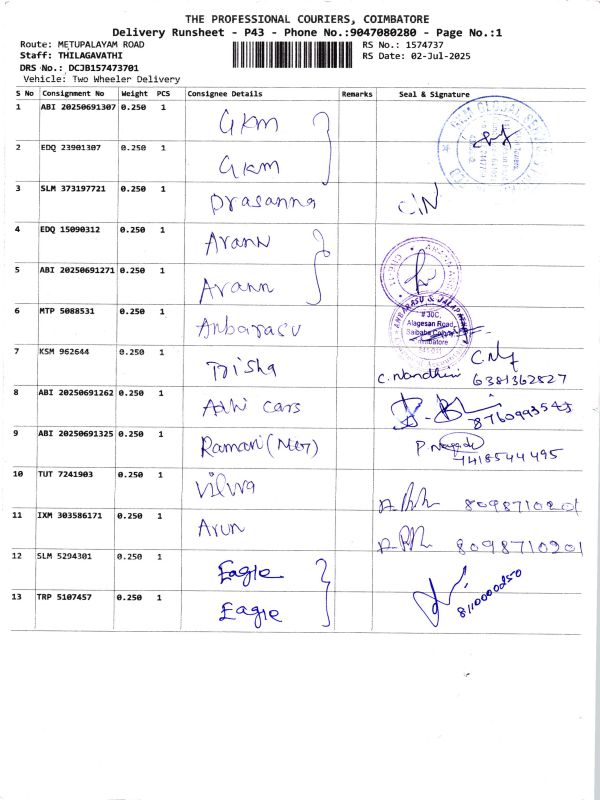 THE PROFESSIONAL COURIERS, COIMBATORE
Delivery Runsheet - P43 - Phone No.:9047080280 - Page No.:1
Route: METUPALAYAM ROAD RS No.: 1574737
Staff: THILAGAVATHI RS Date: 02-Jul-2025
DRS No.: DCJB157473701
Vehicle: Two Wheeler Delivery
S No Consignment No Weight PCS Consignee Details Remarks Seal & Signature
1 ABI 20250691307 0.250 1 GKM
2 EDQ 23901307 0.250 1 GKM
3 SLM 373197721 0.250 1 Prasanna
4 EDQ 15090312 0.250 1 Arann
5 ABI 20250691271 0.250 1 Arann
6 MTP 5088531 0.250 1 Anbarasu
ANBARASU &
#30C,
Alagesan Road,
Saibaba Colony
7 KSM 962644 0.250 1 Trisha
C. Nandhini 6381362827
8 ABI 20250691262 0.250 1 Adhi cars
9 ABI 20250691325 0.250 1 Ramani
10 TUT 7241903 0.250 1 Vilwa 8098710201
11 IXM 303586171 0.250 1 Arun 8098710201
12 SLM 5294301 0.250 1 Eagle
13 TRP 5107457 0.250 1 Eagle